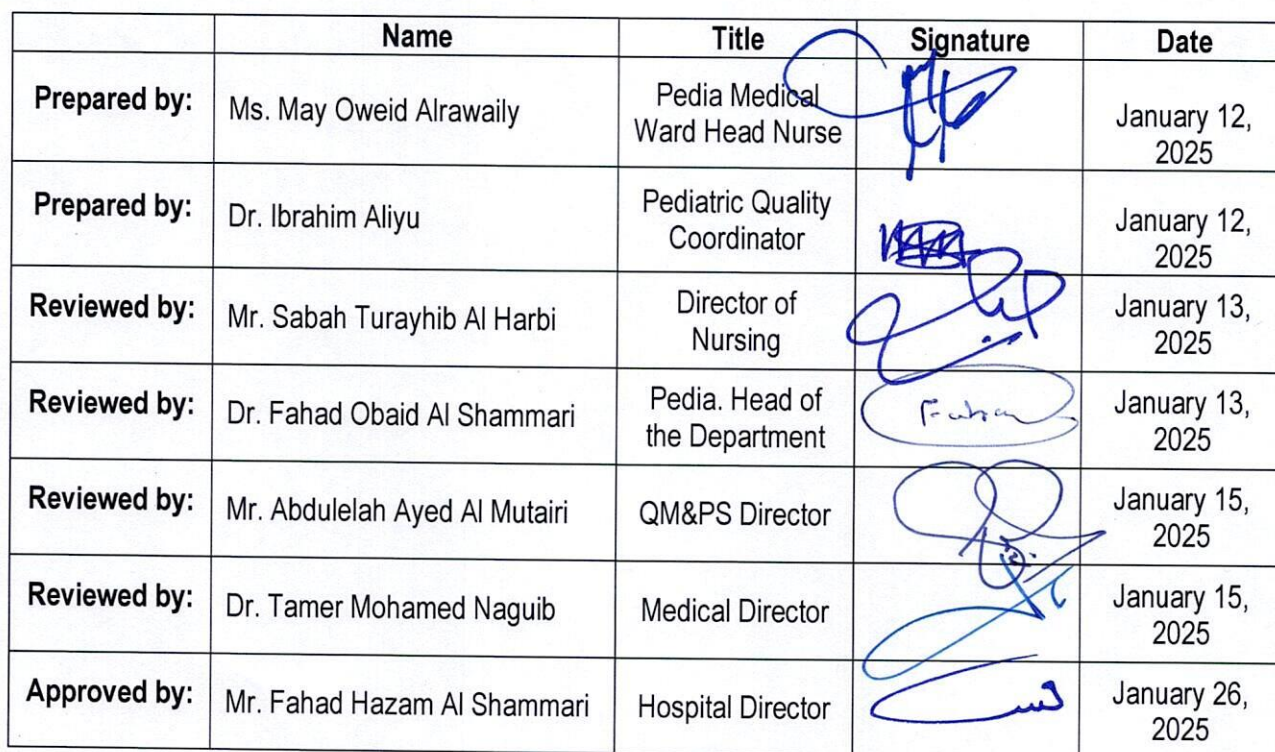 Name Title Signature Date
Prepared by: Ms. May Oweid Alrawaily Pedia Medical
Ward Head Nurse January 12,
2025
Prepared by: Dr. Ibrahim Aliyu Pediatric Quality
Coordinator January 12,
2025
Reviewed by: Mr. Sabah Turayhib Al Harbi Director of
Nursing January 13,
2025
Reviewed by: Dr. Fahad Obaid Al Shammari Pedia. Head of
the Department January 13,
2025
Reviewed by: Mr. Abdulelah Ayed Al Mutairi QM&PS Director January 15,
2025
Reviewed by: Dr. Tamer Mohamed Naguib Medical Director January 15,
2025
Approved by: Mr. Fahad Hazam Al Shammari Hospital Director January 26,
2025